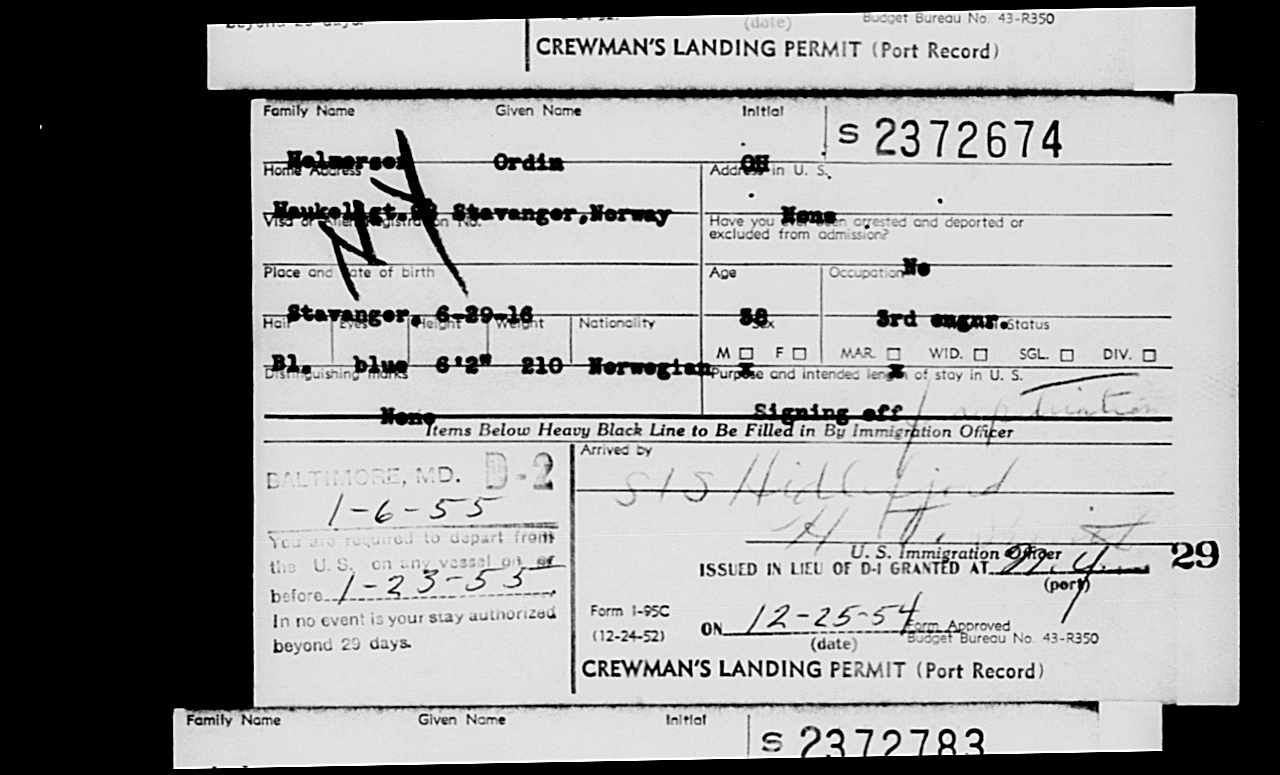 (date)
Budget Bureau No. 43-R350
CREWMAN'S LANDING PERMIT (Port Record)
Family Name Given Name Initial
S 2372674
Helmersen Ordin OH
Home Address Address in U. S.
Stavanger, Norway None
Visa or Alien Registration No. Have you ever been arrested and deported or
excluded from admission?
No
NY
Place and date of birth Age Occupation
Stavanger, 6-29-16 38 3rd engnr.
Hair Eyes Height Weight Nationality Sex Status
M ☐ F ☐ MAR. ☐ WID. ☐ SGL. ☐ DIV. ☐
Bl. blue 6'2" 210 Norwegian x x
Distinguishing marks Purpose and intended length of stay in U. S.
None Signing off
Items Below Heavy Black Line to Be Filled in By Immigration Officer
BALTIMORE, MD. D-2
1-6-55
You are required to depart from
the U. S. on any vessel on or
before 1-23-55
In no event is your stay authorized
beyond 29 days.
Arrived by
S/S
U. S. Immigration Officer
ISSUED IN LIEU OF D-1 GRANTED AT N.Y.
(port)
29
Form I-95C
(12-24-52)
ON 12-25-54
(date)
Form Approved
Budget Bureau No. 43-R350
CREWMAN'S LANDING PERMIT (Port Record)
Family Name Given Name Initial
S 2372783